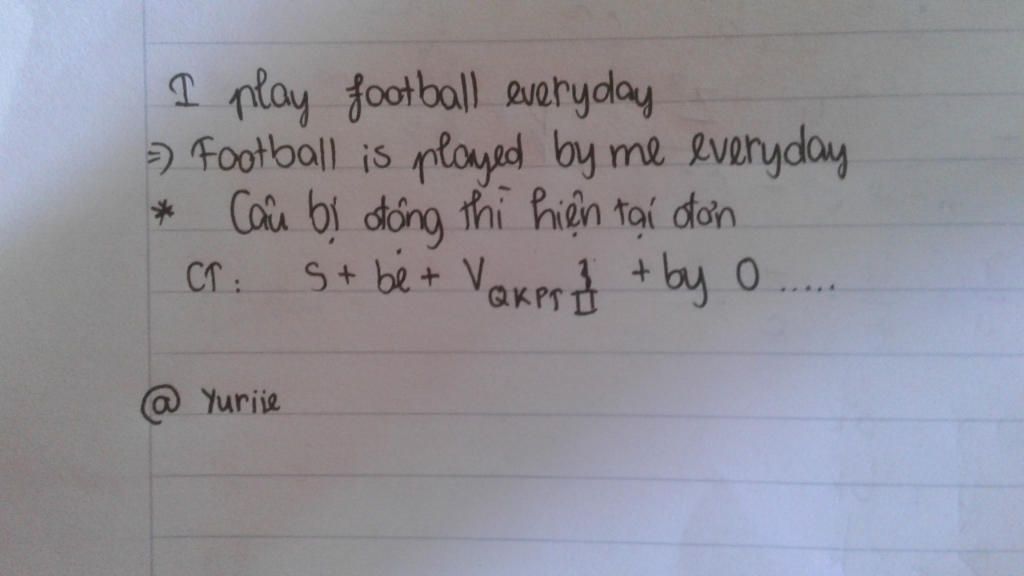 I play football everyday
=> Football is played by me everyday
* Câu bị động thì hiện tại đơn
CT: S + be + V QKPT II + by O .....
@ Yuriie